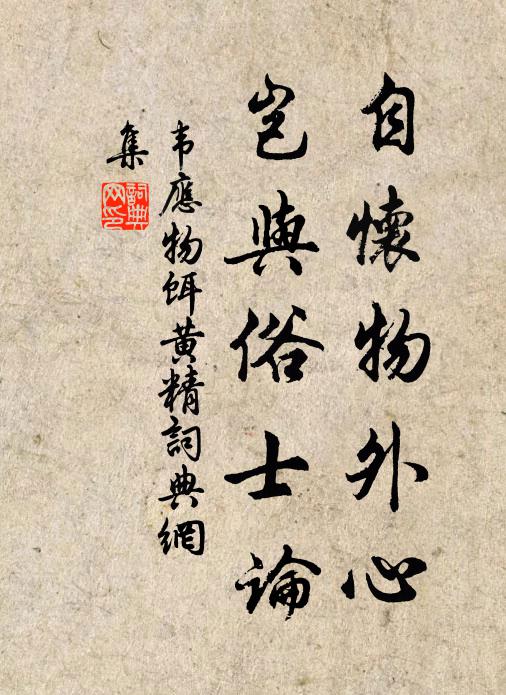 自懷物外心
豈與俗士論
韦應物餌黄精詞典網
集
詞典
网印